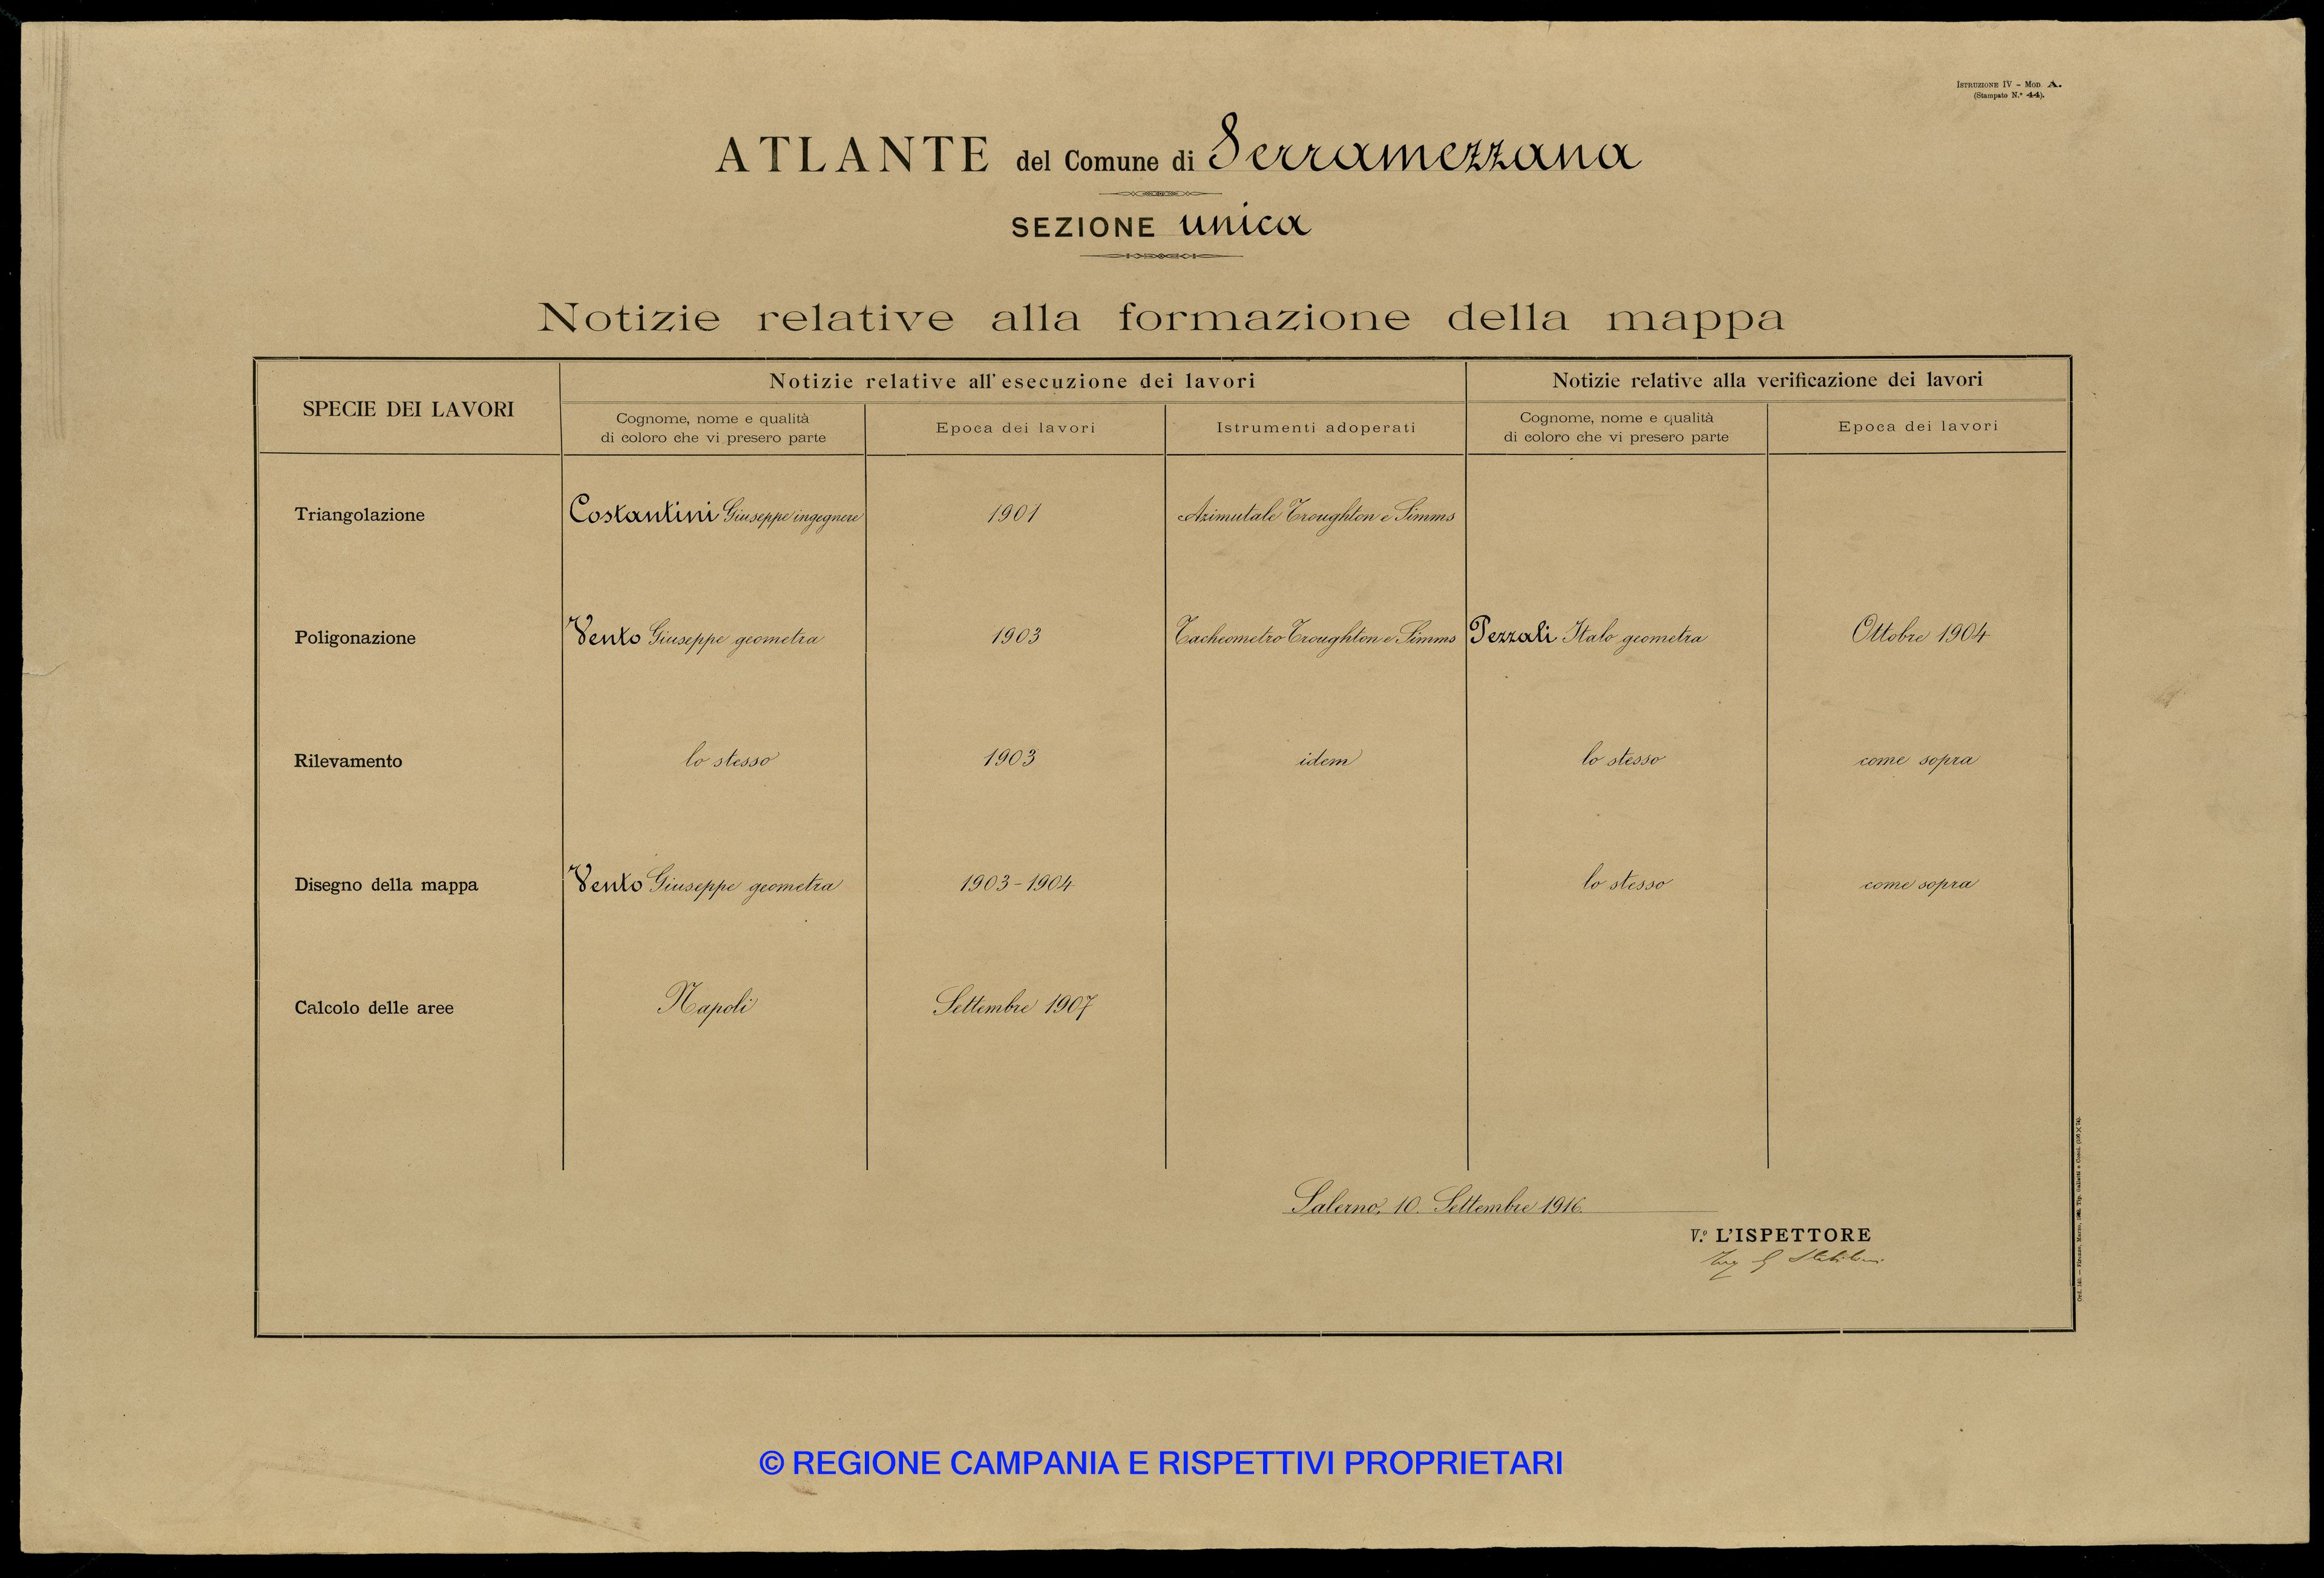 ISTRUZIONE IV - MOD. A.
(Stampato N.° 44).
ATLANTE del Comune di Serramezzana
SEZIONE unica
Notizie relative alla formazione della mappa
SPECIE DEI LAVORI
Notizie relative all'esecuzione dei lavori
Notizie relative alla verificazione dei lavori
Cognome, nome e qualità
di coloro che vi presero parte
Epoca dei lavori
Istrumenti adoperati
Cognome, nome e qualità
di coloro che vi presero parte
Epoca dei lavori
Triangolazione Costantini Giuseppe ingegnere 1901 Azimutale Troughton e Simms
Poligonazione Vento Giuseppe geometra 1903 Tacheometro Troughton e Simms Pezzali Italo geometra Ottobre 1904
Rilevamento lo stesso 1903 idem lo stesso come sopra
Disegno della mappa Vento Giuseppe geometra 1903-1904 lo stesso come sopra
Calcolo delle aree Napoli Settembre 1907
Salerno, 10. Settembre 1916.
V.° L'ISPETTORE
Ing G
© REGIONE CAMPANIA E RISPETTIVI PROPRIETARI